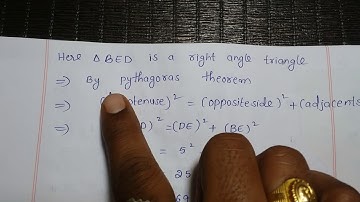 Here Δ BED is a right angle triangle
⇒ By pythagoras theorem
⇒ )² = (opposite side)² + (adjacent s
⇒ )² = (DE)² + (BE)²
= 5²
= 25